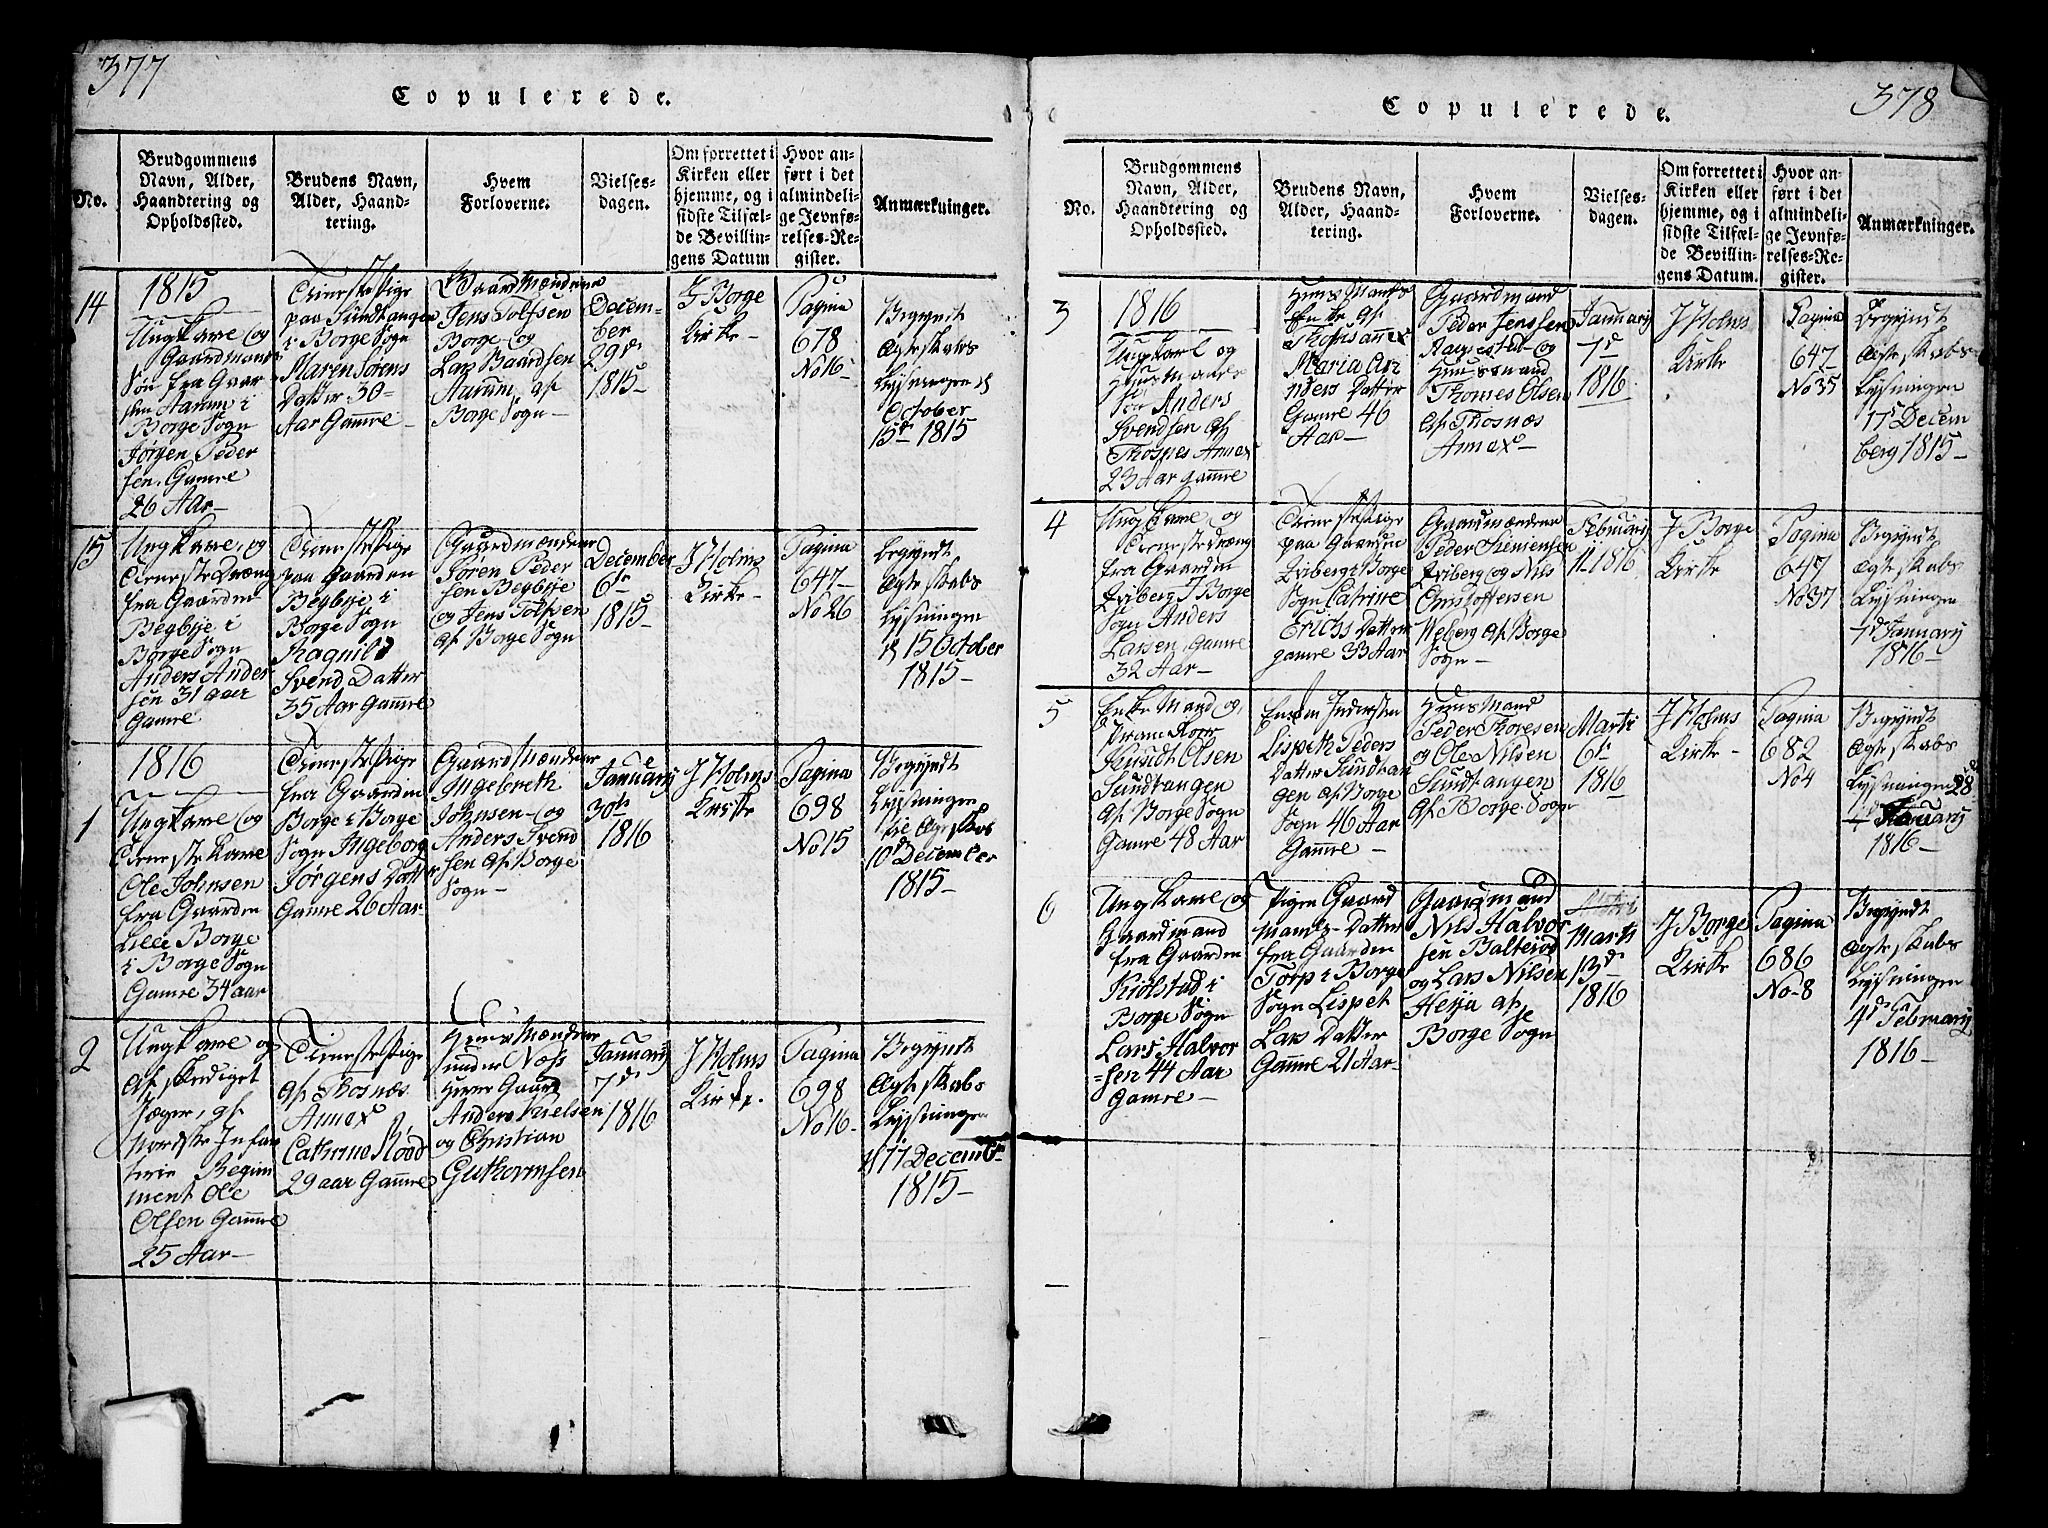 377
Copulerede.
No.
Brudgommens
Navn, Alder,
Haandtering og
Opholdssted.
Brudens Navn,
Alder, Haand-
tering.
Hvem
Forloverne.
Vielses-
dagen.
Om forrettet i
Kirken eller
hjemme, og i
sidste Tilfæl-
de Bevillin-
gens Datum
Hvor an-
ført i det
almindeli-
ge Jevnfø-
relses-Re-
gister.
Anmærkninger.
14
1815
UngKarl og
Gaardmands
Søn fra Gaar
den Aarum i
Borge Sogn
Jørgen Peder
sen. Gamle
26 Aar
Tieneste Pige
paa Sundtangen
i Borge Sogn
Maren Sørens
Datter 30
Aar Gamle
Gaardmændene
Jens Tolfsen
Borge og
Lars Baardsen
Aarum af
Borge Sogn
Decem-
ber
29de
1815
I Borge
Kirke
Pagina
678
No 16
Begyndt
Ægteskabs
Lysningen d
October
15de 1815
15
UngKarl og
Tieneste Dræng
fra Gaarden
Begbye i
Borge Sogn
Anders Ander
sen 31 aar
Gamle
Tieneste Pige
paa Gaarden
Begbye i
Borge Sogn
Ragnild
Svend Datter
35 Aar Gamle
Gaardmændene
Søren Peder
sen Begbye
og Jens Tolfsen
af Borge Sogn
December
6te
1815
I Holms
Kirke
Pagina
647
No 26
begyndt
Ægteskabs
Lysningen
d 15 October
1815
1816
1
UngKarl og
Tieneste Karl
Ole Johnsen
fra Gaarden
Lille Borge
i Borge Sogn
Gamle 34 aar
Tieneste Pige
fra Gaarden
Borge i Borge
Sogn Ingeborg
Jørgens Datter
Gamle 26 Aar
Gaardmændene
Ingebreth
Johnsen og
Anders Svend
sen af Borge
Sogn
January
30te
1816
I Holms
Kirke
Pagina
698
No 15
Begyndt
Lysningen
til Ægteskab
10de December
1815
2
UngKarl og
Afskediget
Jæger, af
Nordske Infan
terie Regim
ment Ole
Olsen Gamle
25 Aar
Tieneste Pige
af Thosnæs
Annex
Cathrine
29 aar Gamle
Huusmændene
under
Herre Gaard
Anders Nielsen
og Christian
Guthormsen
January
7de
1816
I Holms
Kirke.
Pagina
698
No 16
Begyndt
Ægteskabs
Lysningen
d 17 Decemb
1815
378
Copulerede.
No.
Brudgommens
Navn, Alder,
Haandtering og
Opholdssted.
Brudens Navn,
Alder, Haand-
tering.
Hvem
Forloverne.
Vielses-
dagen.
Om forrettet i
Kirken eller
hjemme, og i
sidste Tilfæl-
de Bevillin-
gens Datum.
Hvor an-
ført i det
almindeli-
ge Jevnfø-
relses-Re-
gister.
Anmærkninger.
3
1816
Ungkarl og
Huusmands
Søn Anders
Svendsen af
Thosnes Annex
23 Aar gamle
Huusmands
Enke af
Thosnæs Annex
Maria
Anders Datter
Gamle 46
Aar
Gaardmand
Peder Jenssen
og
Huusmand
Thomes Olsen
af Thosnæs
Annex
January
7de
1816
I Holms
Kirke
Pagina
647
No 35
Begyndt
Ægteskabs
Lysningen
17de Decem
berg 1815
4
UngKarl og
Tieneste dræng
fra Gaarden
Qviberg I Borge
Sogn Anders
Larsen, Gamle
32 Aar
Tieneste Pige
paa Gaarden
Qviberg i Borge
Sogn Catrine
Erichs Datter
gamle 33 Aar
Gaardmændene
Peder Simensen
Qviberg og Nils
Christoffersen
Weberg af Borge
Sogn
February
11 1816
I Borge
Kirke
Pagina
647
No 37
Begyndt
Ægteskabs
Lysningen
7de January
1816
5
Enke Mand og
Knudt Olsen
Sundtangen
af Borge Sogn
Gamle 48 Aar
Enken Indersten
Lispeth Peders
Datter Sundtan
gen af Borge
Sogn 46 Aar
Gamle
Huusmand
Peder Thoresen
og Ole Nilsen
Sundtangen
af Borge Sogn
Marti
6te
1816
I Holms
Kirke
Pagina
682
No 4
Begyndt
Ægteskabs
Lysningen 28
January
1816
6
UngKarl og
Gaardmand
fra Gaarden
Kiølstad i
Borge Sogn
Lars Halvor
sen 44 Aar
Gamle
Pigen Gaard
mands Datter
fra Gaarden
Torp i Borge
Sogn Lispet
Lars Datter
Gamle 21 Aar
Gaardmand
Nils Halvor
sen
og Lars Nilsen
af
Borge Sogn
Marti
13de
1816
I Borge
Kirke
Pagina
686
No 8
Begyndt
Ægteskabs
Lysningen
4de February
1816